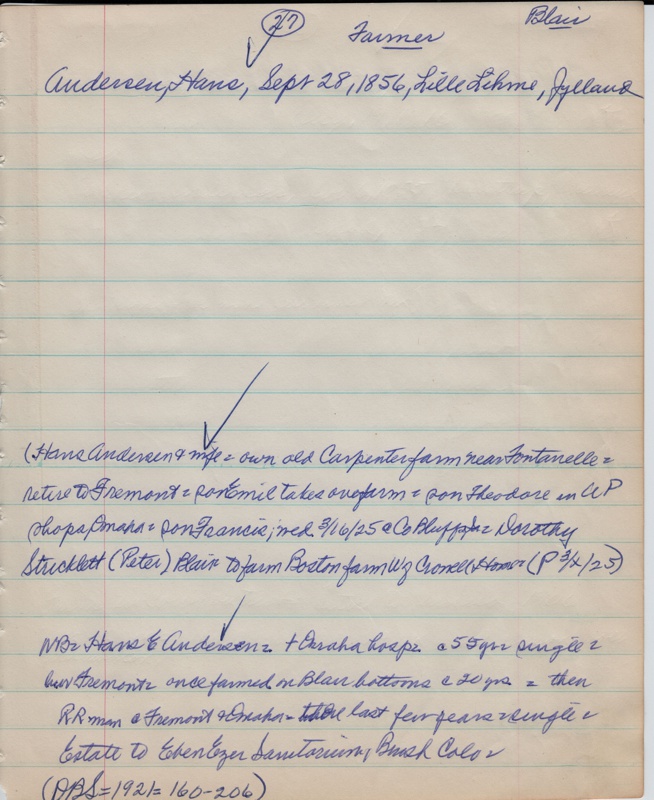 27 Farmer Blair
Andersen, Hans, Sept 28, 1856, Lille Lihme, Jylland
(Hans Andersen & wife = own old Carpenter farm near Fontanelle =
retire to Fremont = son Emil takes over farm = son Theodore in UP
shops Omaha = son Francis, wed. 3/16/25 @ Co Bluffs, Ia = Dorothy
Stricklett (Peter) Blair to farm Boston farm Crowell Home (P 3/4/25)
NB = Hans E Andersen = + Omaha hosp = @ 55 yrs single =
bur Fremont = once farmed on Blair bottoms c 20 yrs = then
RR man @ Fremont & Omaha = last few years = single =
Estate to EbenEzer Sanitorium, Brush Colo =
(DBS = 1921 = 160-206)